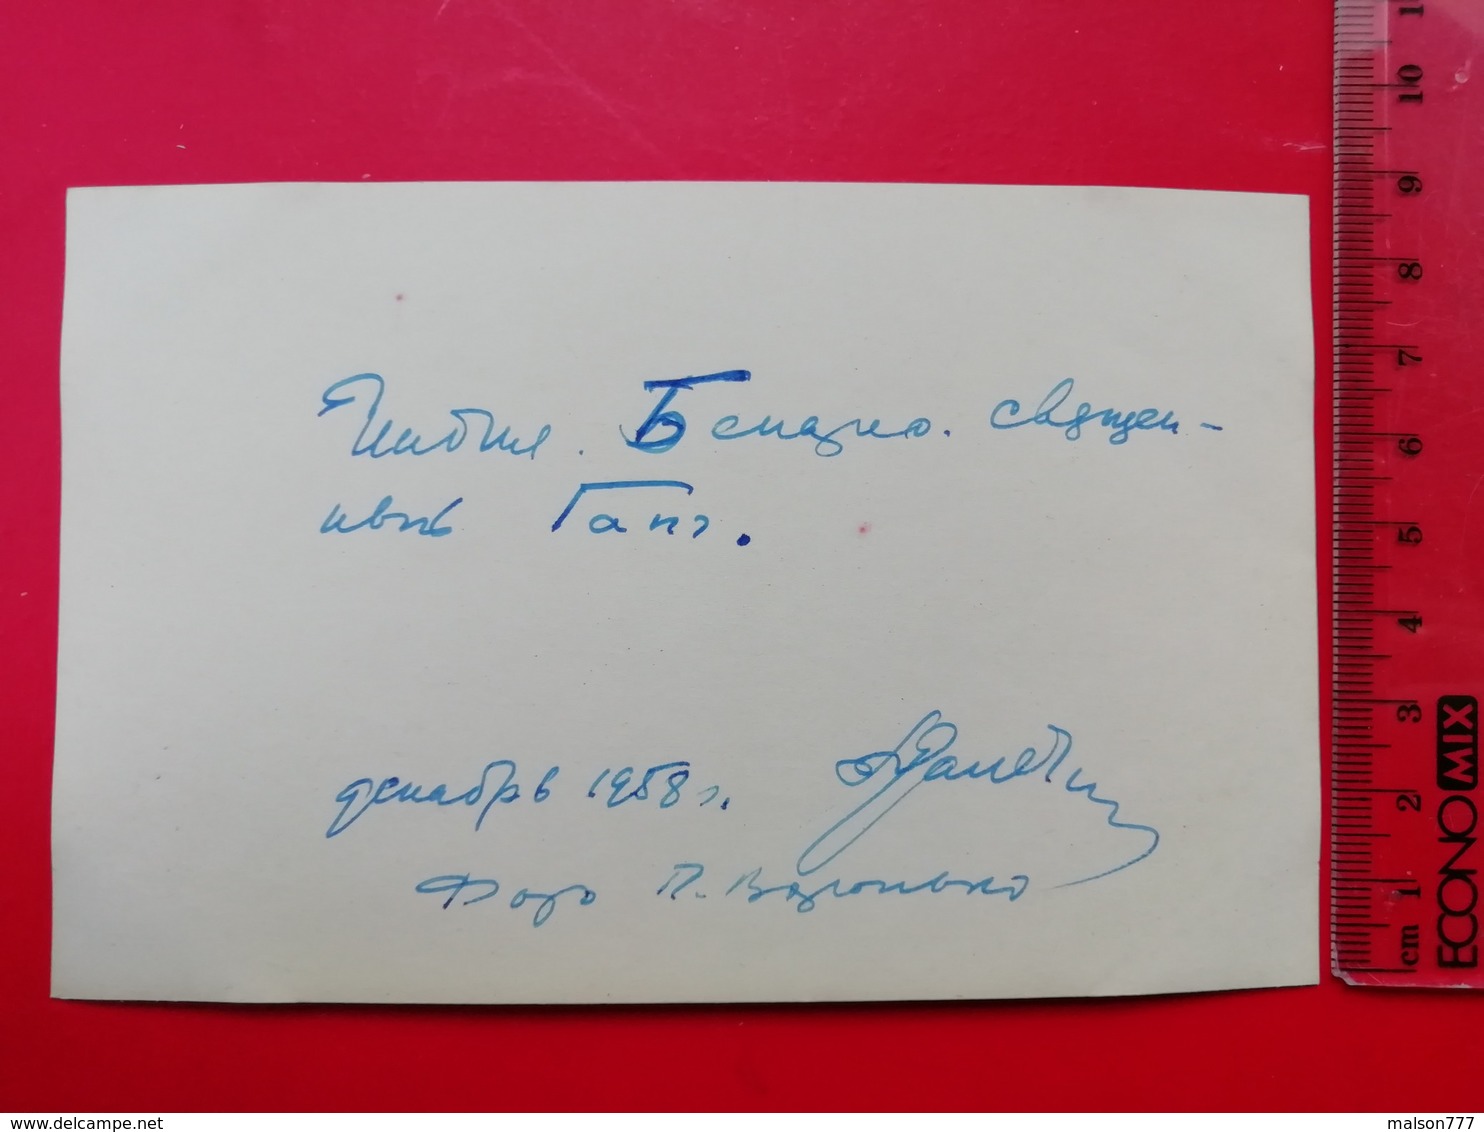 Индия. Бенарес. священ-
ный Ганг.
декабрь 1958 г.
Фото П. Воронько
10
9
8
7
6
5
4
3
2
1
cm
ECONOMIX
delcampe.net
malson777